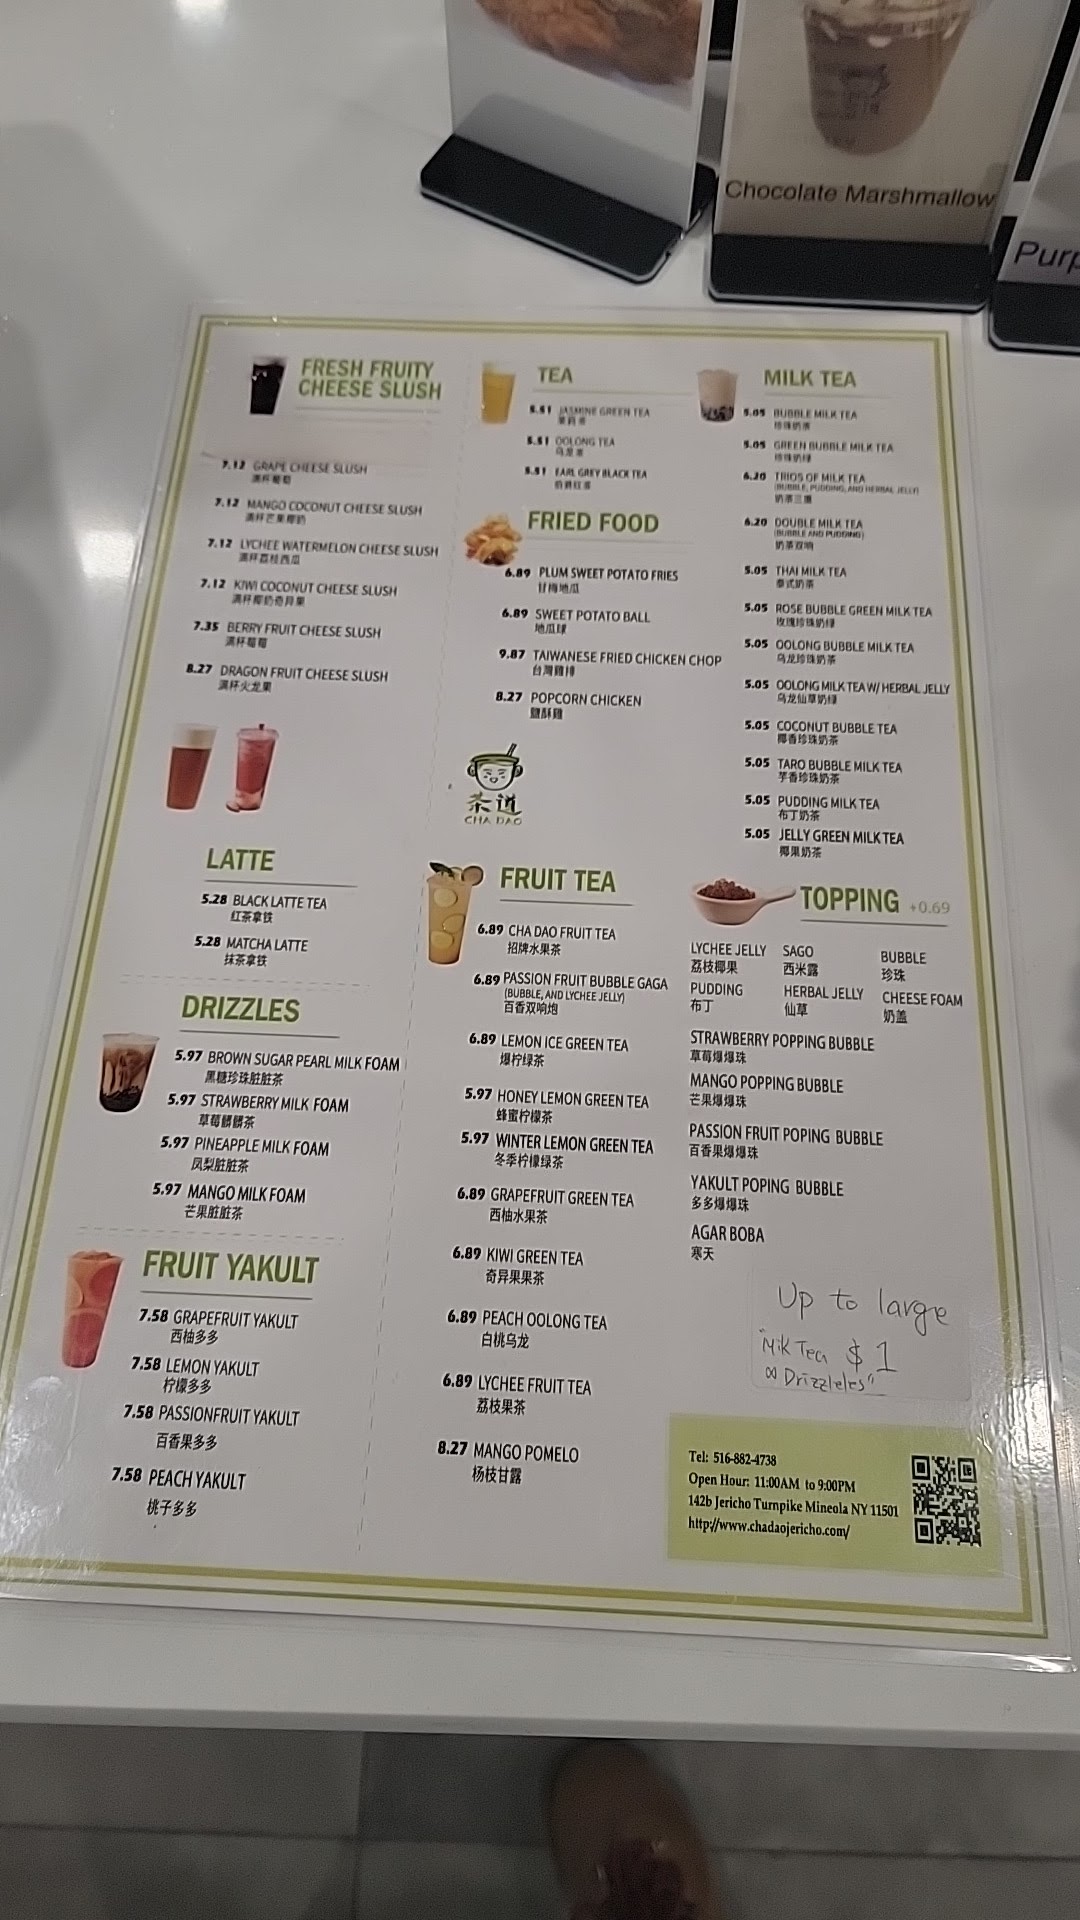 Chocolate Marshmallow
Purp
FRESH FRUITY
CHEESE SLUSH
7.12 GRAPE CHEESE SLUSH
满杯葡萄
7.12 MANGO COCONUT CHEESE SLUSH
满杯芒果椰奶
7.12 LYCHEE WATERMELON CHEESE SLUSH
满杯荔枝西瓜
7.12 KIWI COCONUT CHEESE SLUSH
满杯椰奶奇异果
7.35 BERRY FRUIT CHEESE SLUSH
满杯莓莓
8.27 DRAGON FRUIT CHEESE SLUSH
满杯火龙果
LATTE
5.28 BLACK LATTE TEA
红茶拿铁
5.28 MATCHA LATTE
抹茶拿铁
DRIZZLES
5.97 BROWN SUGAR PEARL MILK FOAM
黑糖珍珠脏脏茶
5.97 STRAWBERRY MILK FOAM
草莓髒髒茶
5.97 PINEAPPLE MILK FOAM
凤梨脏脏茶
5.97 MANGO MILK FOAM
芒果脏脏茶
FRUIT YAKULT
7.58 GRAPEFRUIT YAKULT
西柚多多
7.58 LEMON YAKULT
柠檬多多
7.58 PASSIONFRUIT YAKULT
百香果多多
7.58 PEACH YAKULT
桃子多多
TEA
5.51 JASMINE GREEN TEA
茉莉茶
5.51 OOLONG TEA
乌龙茶
5.51 EARL GREY BLACK TEA
伯爵红茶
FRIED FOOD
6.89 PLUM SWEET POTATO FRIES
甘梅地瓜
6.89 SWEET POTATO BALL
地瓜球
9.87 TAIWANESE FRIED CHICKEN CHOP
台灣雞排
8.27 POPCORN CHICKEN
鹽酥雞
茶道
CHA DAO
FRUIT TEA
6.89 CHA DAO FRUIT TEA
招牌水果茶
6.89 PASSION FRUIT BUBBLE GAGA
(BUBBLE, AND LYCHEE JELLY)
百香双响炮
6.89 LEMON ICE GREEN TEA
爆柠绿茶
5.97 HONEY LEMON GREEN TEA
蜂蜜柠檬茶
5.97 WINTER LEMON GREEN TEA
冬季柠檬绿茶
6.89 GRAPEFRUIT GREEN TEA
西柚水果茶
6.89 KIWI GREEN TEA
奇异果果茶
6.89 PEACH OOLONG TEA
白桃乌龙
6.89 LYCHEE FRUIT TEA
荔枝果茶
8.27 MANGO POMELO
杨枝甘露
MILK TEA
5.05 BUBBLE MILK TEA
珍珠奶茶
5.05 GREEN BUBBLE MILK TEA
珍珠奶绿
6.20 TRIOS OF MILK TEA
(BUBBLE, PUDDING, AND HERBAL JELLY)
奶茶三重
6.20 DOUBLE MILK TEA
(BUBBLE AND PUDDING)
奶茶双响
5.05 THAI MILK TEA
泰式奶茶
5.05 ROSE BUBBLE GREEN MILK TEA
玫瑰珍珠奶绿
5.05 OOLONG BUBBLE MILK TEA
乌龙珍珠奶茶
5.05 OOLONG MILK TEA W/ HERBAL JELLY
乌龙仙草奶绿
5.05 COCONUT BUBBLE TEA
椰香珍珠奶茶
5.05 TARO BUBBLE MILK TEA
芋香珍珠奶茶
5.05 PUDDING MILK TEA
布丁奶茶
5.05 JELLY GREEN MILK TEA
椰果奶茶
TOPPING +0.69
LYCHEE JELLY SAGO BUBBLE
荔枝椰果 西米露 珍珠
PUDDING HERBAL JELLY CHEESE FOAM
布丁 仙草 奶盖
STRAWBERRY POPPING BUBBLE
草莓爆爆珠
MANGO POPPING BUBBLE
芒果爆爆珠
PASSION FRUIT POPING BUBBLE
百香果爆爆珠
YAKULT POPING BUBBLE
多多爆爆珠
AGAR BOBA
寒天
Up to large
"Milk Tea $1
∞ Drizzleles"
Tel: 516-882-4738
Open Hour: 11:00AM to 9:00PM
142b Jericho Turnpike Mineola NY 11501
http://www.chadaojericho.com/